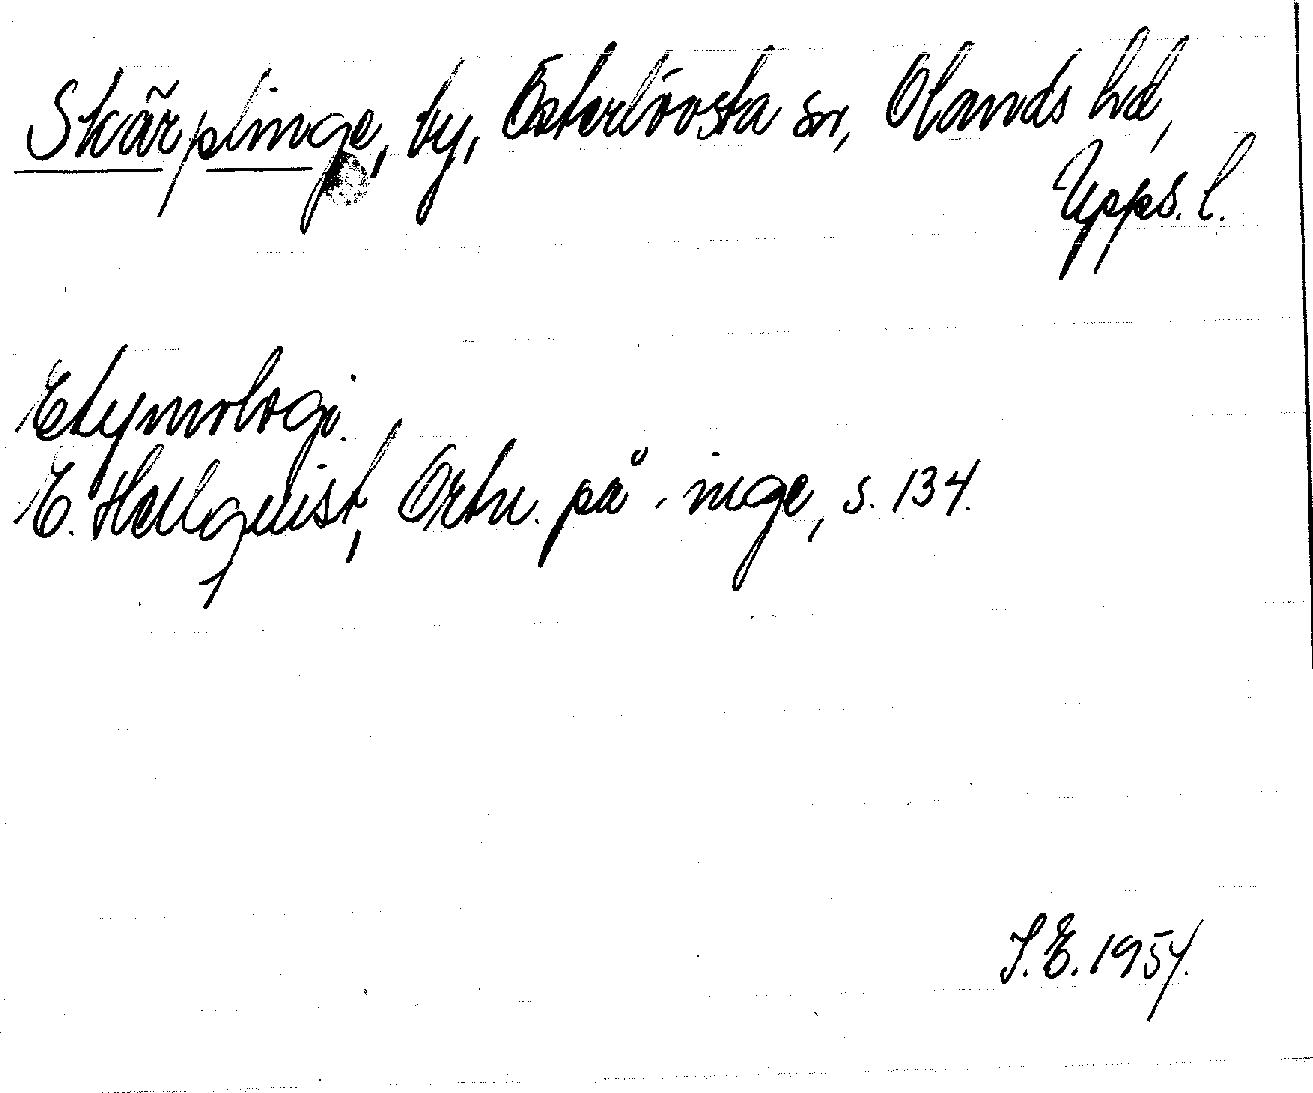 Skärplinge, by, Österlövsta sn, Olands hd,
Upps. l.
Etymologi.
E. Hellquist, Ortn. på -inge, s. 134.
S.E. 1954.